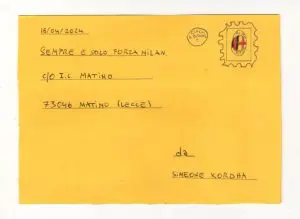 15/04/2024
SEMPRE E SOLO FORZA MILAN
C/O I.C. MATINO
73046 MATINO (LECCE)
da
SIMEONE KORDHA